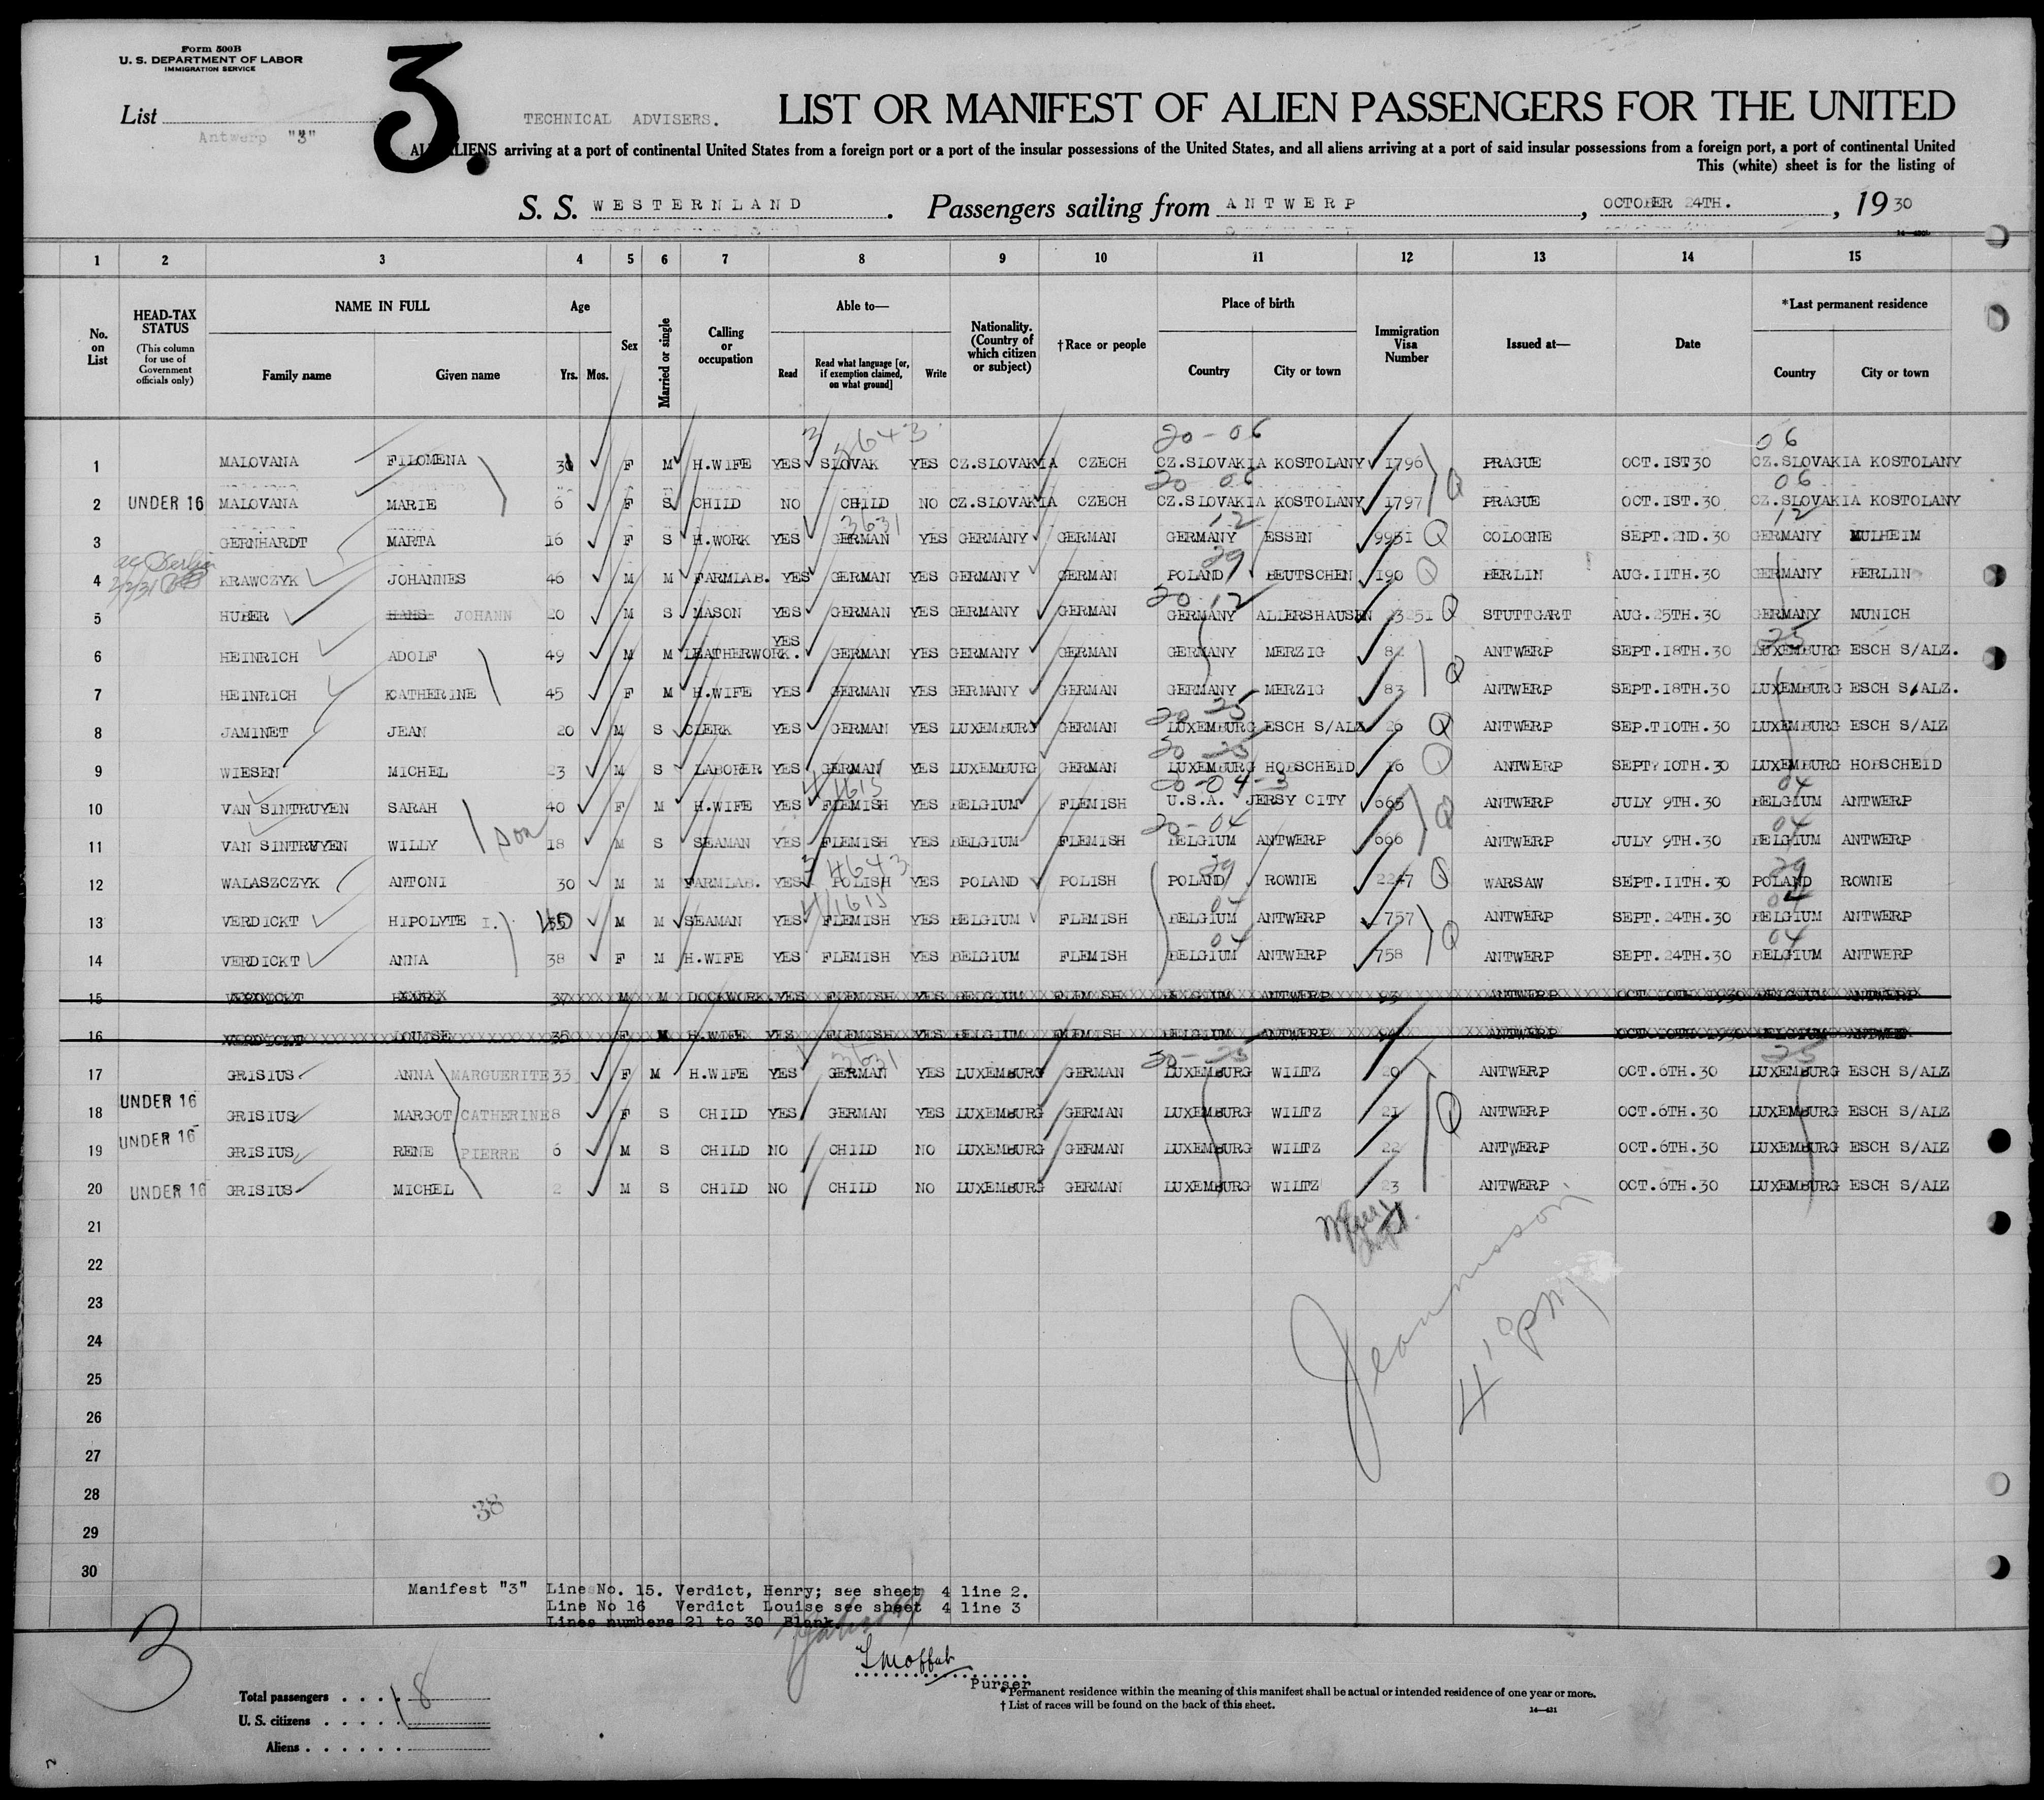 Form 500B
U. S. DEPARTMENT OF LABOR
IMMIGRATION SERVICE
List
Antwerp "3"
3.
TECHNICAL ADVISERS.
LIST OR MANIFEST OF ALIEN PASSENGERS FOR THE UNITED
ALL ALIENS arriving at a port of continental United States from a foreign port or a port of the insular possessions of the United States, and all aliens arriving at a port of said insular possessions from a foreign port, a port of continental United
This (white) sheet is for the listing of
S. S. WESTERNLAND. Passengers sailing from ANTWERP, OCTOBER 24TH., 1930
1 2 3 4 5 6 7 8 9 10 11 12 13 14 15
No. on List
HEAD-TAX STATUS (This column for use of Government officials only)
NAME IN FULL Family name Given name
Age Yrs. Mos.
Sex
Married or single
Calling or occupation
Able to— Read Read what language [or, if exemption claimed, on what ground] Write
Nationality. (Country of which citizen or subject)
†Race or people
Place of birth Country City or town
Immigration Visa Number
Issued at—
Date
*Last permanent residence Country City or town
3 3643 20-06 06
1 MALOVANA FILOMENA 30 F M H.WIFE YES SLOVAK YES CZ.SLOVAKIA CZECH CZ.SLOVAKIA KOSTOLANY 1796 PRAGUE OCT.1ST.30 CZ.SLOVAKIA KOSTOLANY
20 06 06
2 UNDER 16 MALOVANA MARIE 6 F S CHILD NO CHILD NO CZ.SLOVAKIA CZECH CZ.SLOVAKIA KOSTOLANY 1797 Q PRAGUE OCT.1ST.30 CZ.SLOVAKIA KOSTOLANY
3631 12 12
3 GERNHARDT MARTA 16 F S H.WORK YES GERMAN YES GERMANY GERMAN GERMANY ESSEN 9951 Q COLOGNE SEPT.2ND.30 GERMANY MULHEIM
29
4 KRAWCZYK JOHANNES 46 M M FARMLAB. YES GERMAN YES GERMANY GERMAN POLAND BEUTSCHEN 190 Q BERLIN AUG.11TH.30 GERMANY BERLIN
20 12
5 HUBER HANS JOHANN 20 M S MASON YES GERMAN YES GERMANY GERMAN GERMANY ALLERSHAUSEN 23251 Q STUTTGART AUG.25TH.30 GERMANY MUNICH
25
6 HEINRICH ADOLF 49 M M LEATHERWORK. YES GERMAN YES GERMANY GERMAN GERMANY MERZIG 82 ANTWERP SEPT.18TH.30 LUXEMBURG ESCH S/ALZ.
7 HEINRICH KATHERINE 45 F M H.WIFE YES GERMAN YES GERMANY GERMAN GERMANY MERZIG 83 Q ANTWERP SEPT.18TH.30 LUXEMBURG ESCH S/ALZ.
20 25
8 JAMINET JEAN 20 M S CLERK YES GERMAN YES LUXEMBURG GERMAN LUXEMBURG ESCH S/ALZ 26 Q ANTWERP SEP.T10TH.30 LUXEMBURG ESCH S/ALZ
20 25
9 WIESEN MICHEL 23 M S LABORER YES GERMAN YES LUXEMBURG GERMAN LUXEMBURG HOBSCHEID 16 Q ANTWERP SEPT.10TH.30 LUXEMBURG HOBSCHEID
4 1615 20-04-3 04
10 VAN SINTRUYEN SARAH 40 F M H.WIFE YES FLEMISH YES BELGIUM FLEMISH U.S.A. JERSY CITY 665 Q ANTWERP JULY 9TH.30 BELGIUM ANTWERP
20-04 04
11 VAN SINTRUYEN WILLY son 18 M S SEAMAN YES FLEMISH YES BELGIUM FLEMISH BELGIUM ANTWERP 666 ANTWERP JULY 9TH.30 BELGIUM ANTWERP
3 4643 29 29
12 WALASZCZYK ANTONI 30 M M FARMLAB. YES POLISH YES POLAND POLISH POLAND ROWNE 2247 Q WARSAW SEPT.11TH.30 POLAND ROWNE
4 1615 04 04
13 VERDICKT HIPOLYTE I. 40 M M SEAMAN YES FLEMISH YES BELGIUM FLEMISH BELGIUM ANTWERP 757 ANTWERP SEPT.24TH.30 BELGIUM ANTWERP
04 04
14 VERDICKT ANNA 38 F M H.WIFE YES FLEMISH YES BELGIUM FLEMISH BELGIUM ANTWERP 758 Q ANTWERP SEPT.24TH.30 BELGIUM ANTWERP
15 VERDICKT 37 M M DOCKWORK. YES FLEMISH YES BELGIUM FLEMISH BELGIUM ANTWERP 93 ANTWERP OCT.10TH.1930 BELGIUM ANTWERP
16 VERDICKT LOUISE 35 F M H.WIFE YES FLEMISH YES BELGIUM FLEMISH BELGIUM ANTWERP ANTWERP OCT.10TH.1930 BELGIUM ANTWERP
3631 20-25 25
17 GRISIUS ANNA MARGUERITE 33 F M H.WIFE YES GERMAN YES LUXEMBURG GERMAN LUXEMBURG WILTZ 20 ANTWERP OCT.6TH.30 LUXEMBURG ESCH S/ALZ
18 UNDER 16 GRISIUS MARGOT CATHERINE 8 F S CHILD YES GERMAN YES LUXEMBURG GERMAN LUXEMBURG WILTZ 21 Q ANTWERP OCT.6TH.30 LUXEMBURG ESCH S/ALZ
19 UNDER 16 GRISIUS RENE PIERRE 6 M S CHILD NO CHILD NO LUXEMBURG GERMAN LUXEMBURG WILTZ 22 ANTWERP OCT.6TH.30 LUXEMBURG ESCH S/ALZ
20 UNDER 16 GRISIUS MICHEL 2 M S CHILD NO CHILD NO LUXEMBURG GERMAN LUXEMBURG WILTZ 23 ANTWERP OCT.6TH.30 LUXEMBURG ESCH S/ALZ
21
22
23
24
25
26
27
28
29
30
Jeannisson
4 10 PM
38
Manifest "3" Line No. 15. Verdict, Henry; see sheet 4 line 2.
Line No 16 Verdict Louise see sheet 4 line 3
Lines numbers 21 to 30 Blank
Moffat
Purser
3
Total passengers . . . . 18
U. S. citizens . . . . .
Aliens . . . . . .
*Permanent residence within the meaning of this manifest shall be actual or intended residence of one year or more.
† List of races will be found on the back of this sheet.
14—431